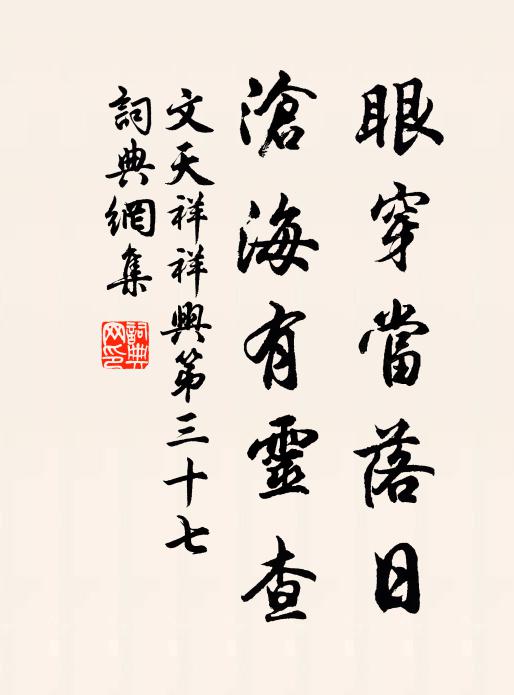 眼穿當落日
滄海有靈查
文天祥祥興第三十七
詞典網集
詞典网印